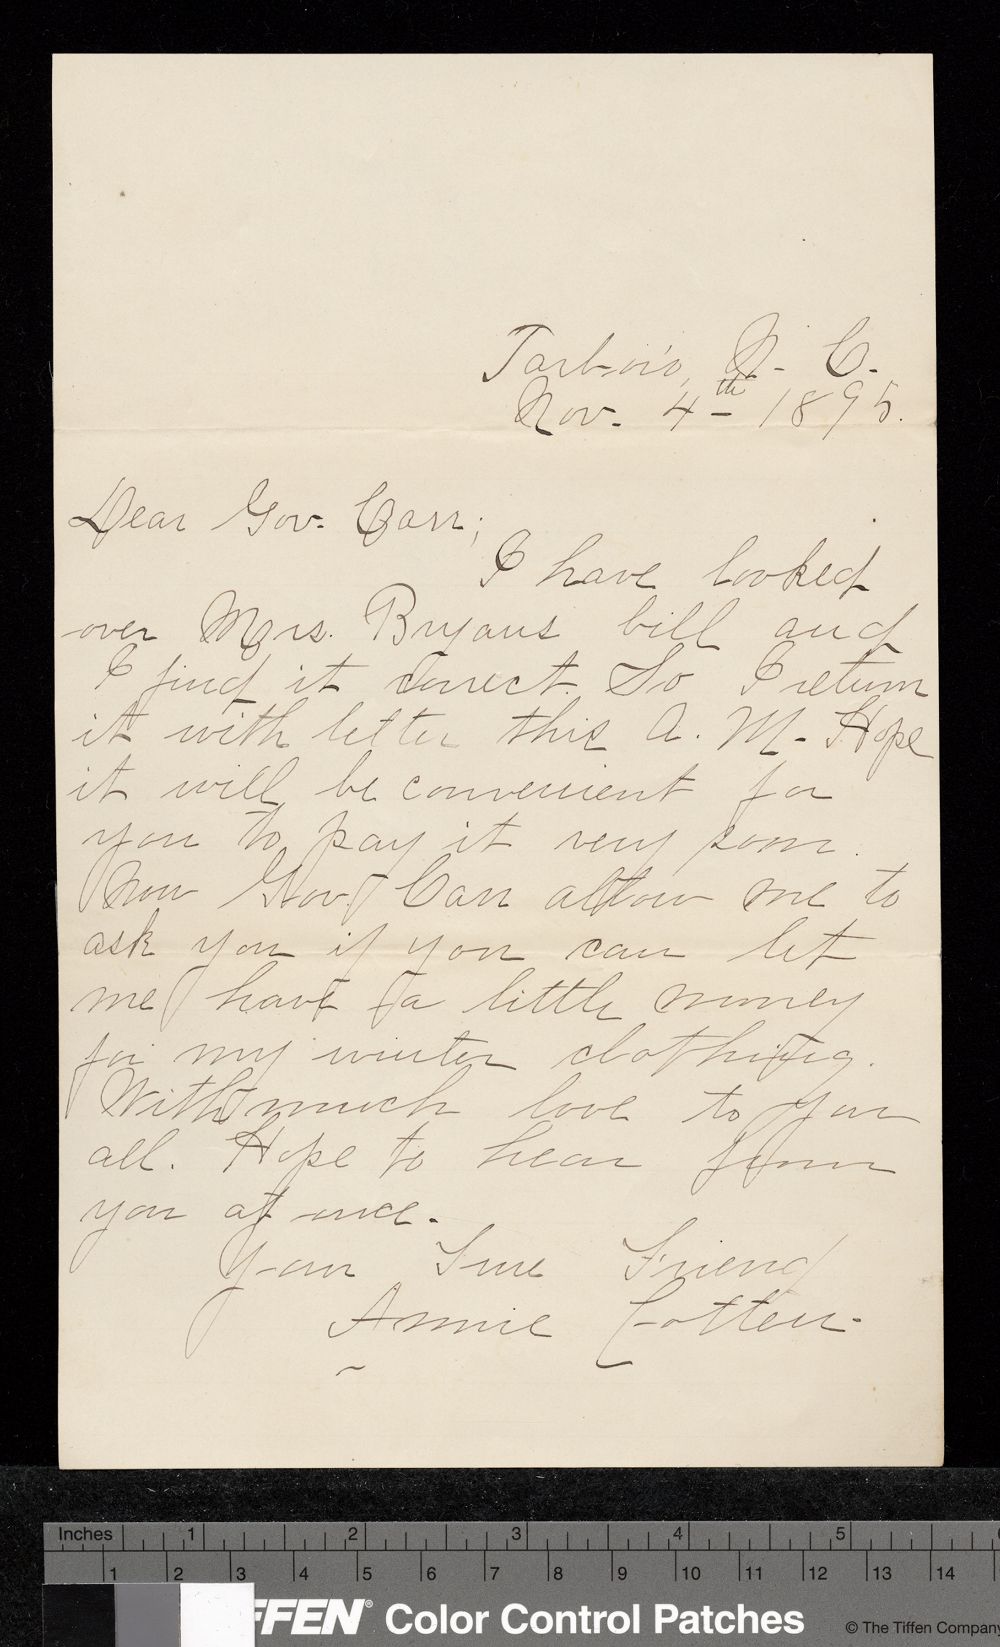 Tarboro, N. C.
Nov. 4th 1895.
Dear Gov. Carr;
I have looked
over Mrs. Bryans bill and
I find it correct. So I return
it with letter this A. M. Hope
it will be convenient for
you to pay it very soon.
Now Gov. Carr allow me to
ask you if you can let
me have a little money
for my winter clothing.
With much love to you
all. Hope to hear from
you at once.
Your True Friend
Annie Cotten.
Inches 1 2 3 4 5
1 2 3 4 5 6 7 8 9 10 11 12 13 14
FFEN® Color Control Patches
© The Tiffen Company